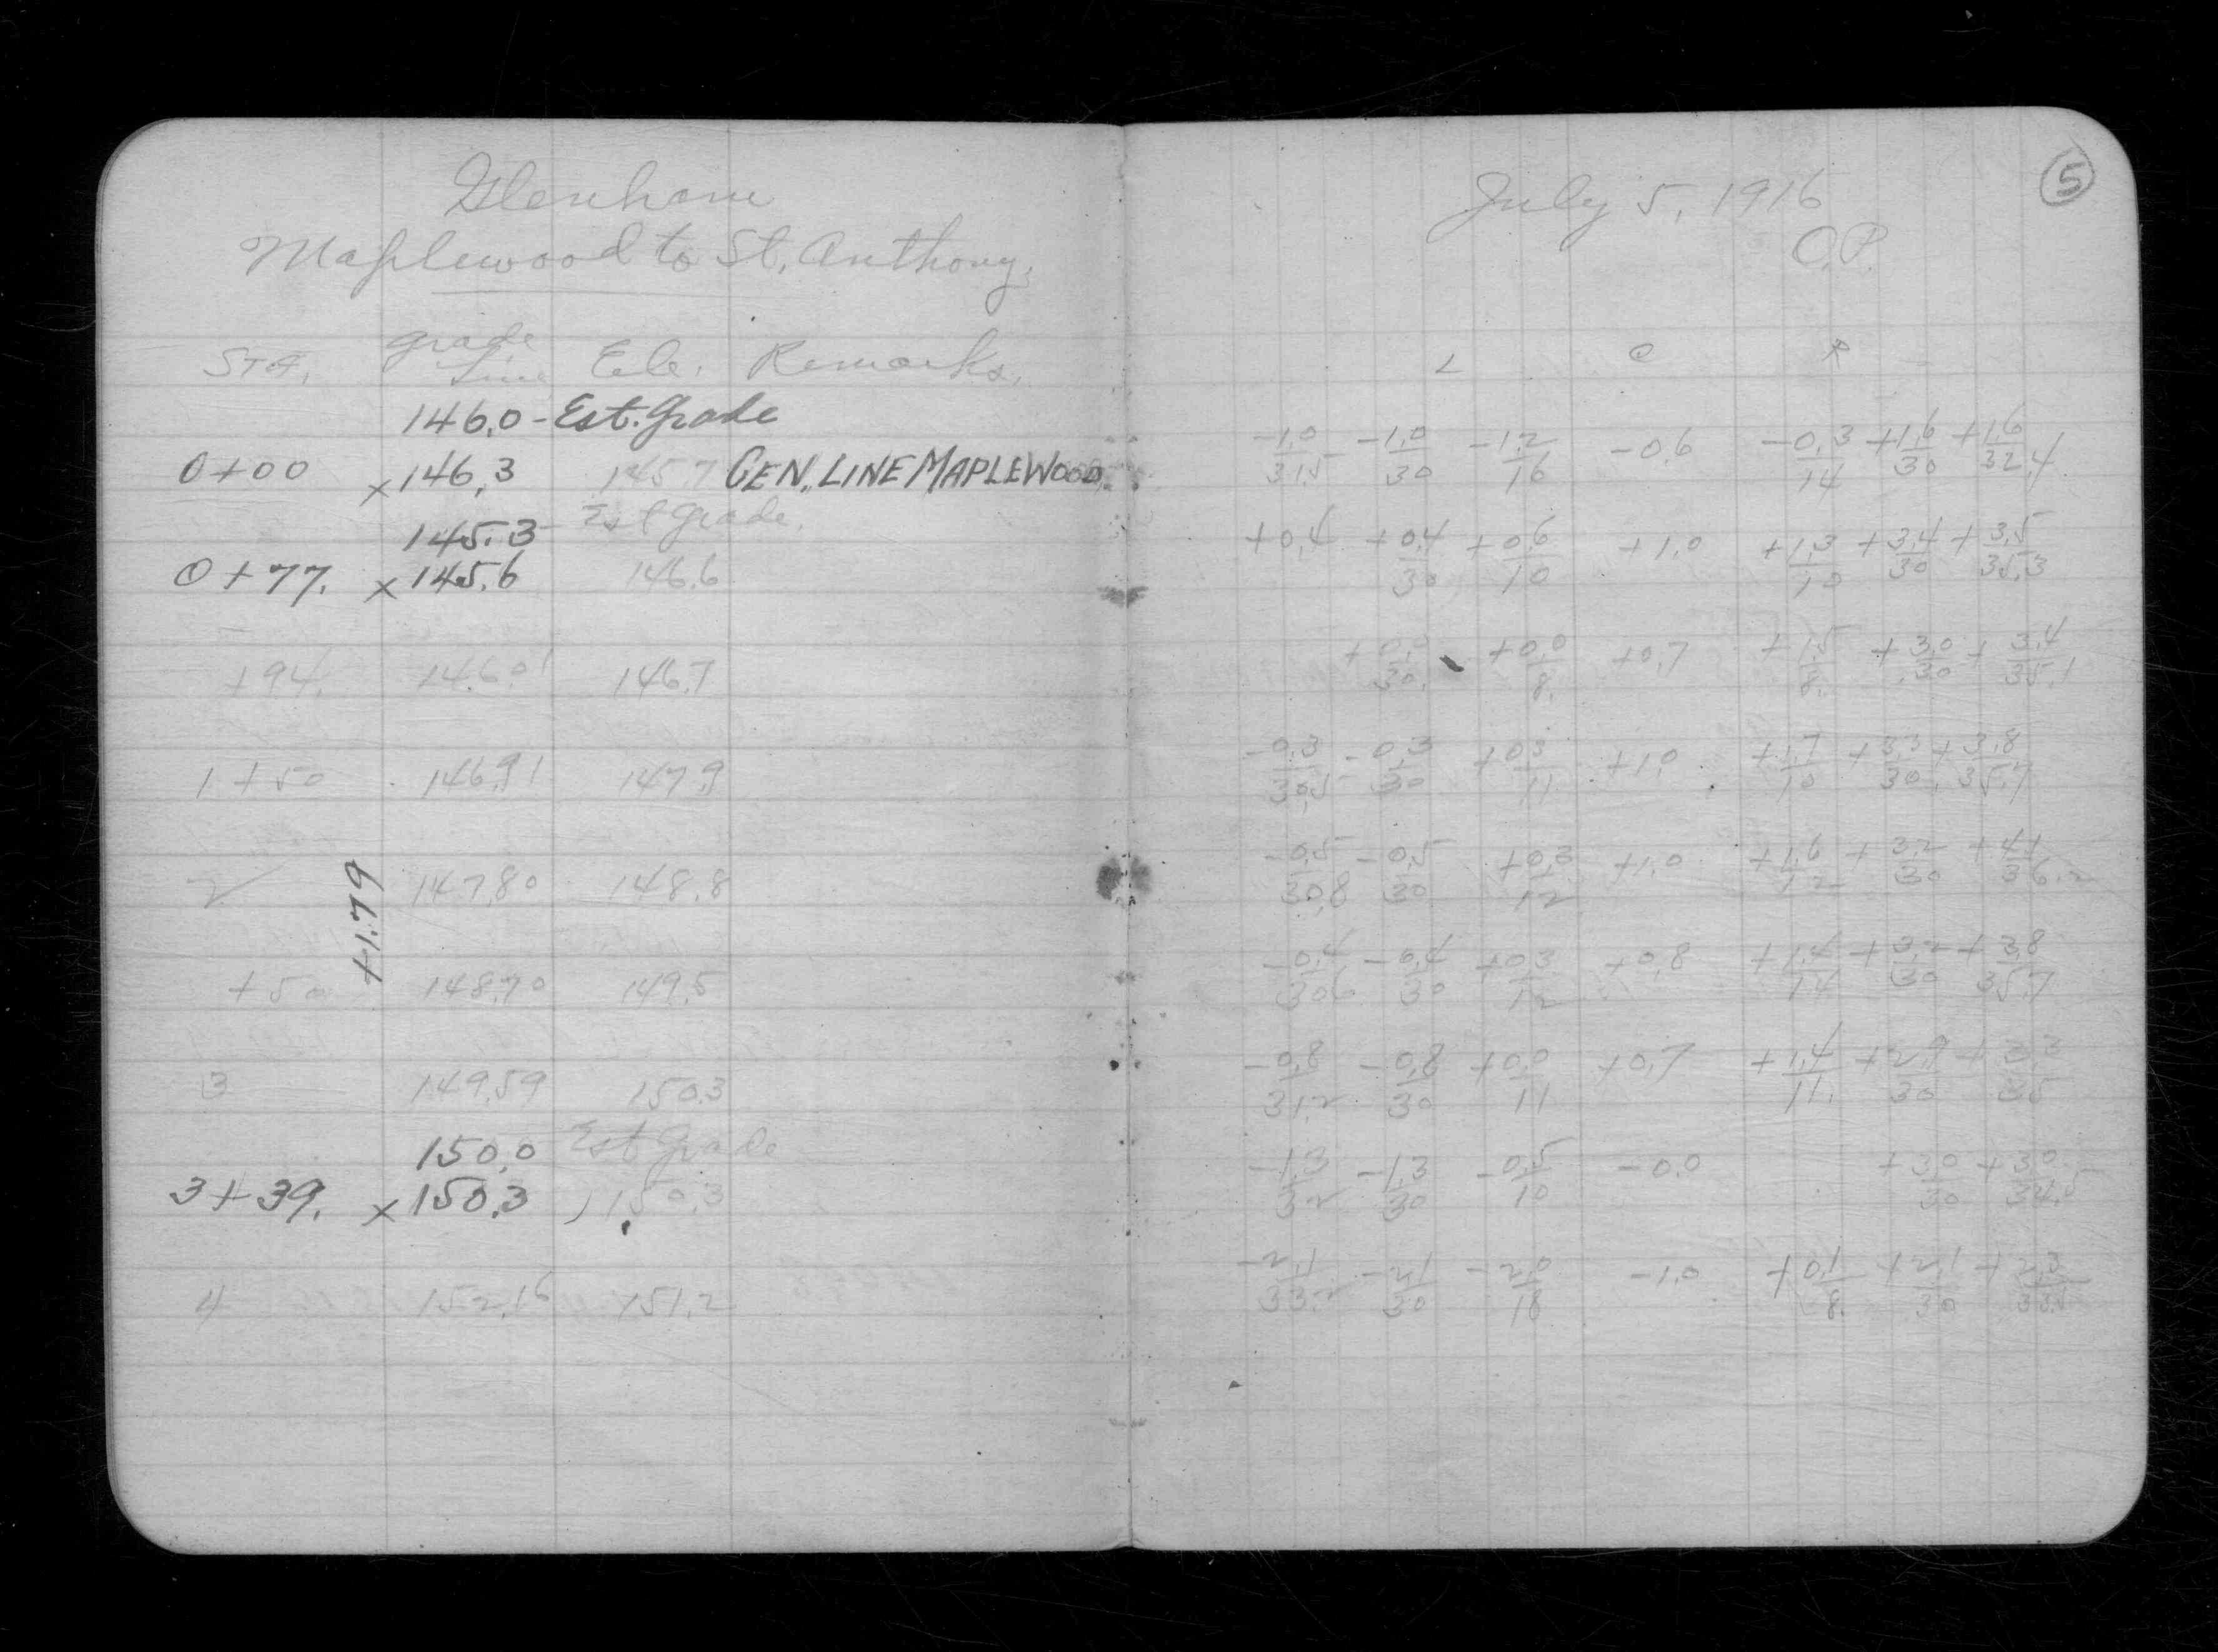 Glenham
Maplewood to St. Anthony.
Sta. grade line Ele. Remarks.
146.0 - Est. Grade
0+00 x 146.3 145.7 CEN. LINE MAPLEWOOD.
145.3 - Est Grade.
0+77. x 145.6 146.6
+94. 146.01 146.7
1+50 146.91 147.9
2 147.80 148.8
+1.79
+50 148.70 149.5
3 149.59 150.3
150.0 Est Grade
3+39. x 150.3 150.3
4 152.16 151.2
5
July 5, 1916
O.P.
L C R
-1.0/31.5 -1.0/30 -1.2/16 -0.6 -0.3/14 +1.6/30 +1.6/32.4
+0.4 +0.4/30 +0.6/10 +1.0 +1.3/10 +3.4/30 +3.5/35.3
+0.0/30. +0.0/8. +0.7 +1.5/8. +3.0/30 +3.4/35.1
-0.3/30.5 -0.3/30 +0.3/11 +1.0 +1.7/10 +3.3/30. +3.8/35.7
-0.5/30.8 -0.5/30 +0.3/12 +1.0 +1.6/12 +3.2/30 +4.1/36.2
-0.4/30.6 -0.4/30 +0.3/12 +0.8 +1.4/14 +3.2/30 +3.8/35.7
-0.8/31.2 -0.8/30 +0.0/11 +0.7 +1.4/11. +2.9/30 +3.3/35
-1.3/32 -1.3/30 -0.5/10 -0.0 +3.0/30 +3.0/34.5
-2.1/33.2 -2.1/30 -2.0/18 -1.0 +0.1/8. +2.1/30 +2.3/33.5